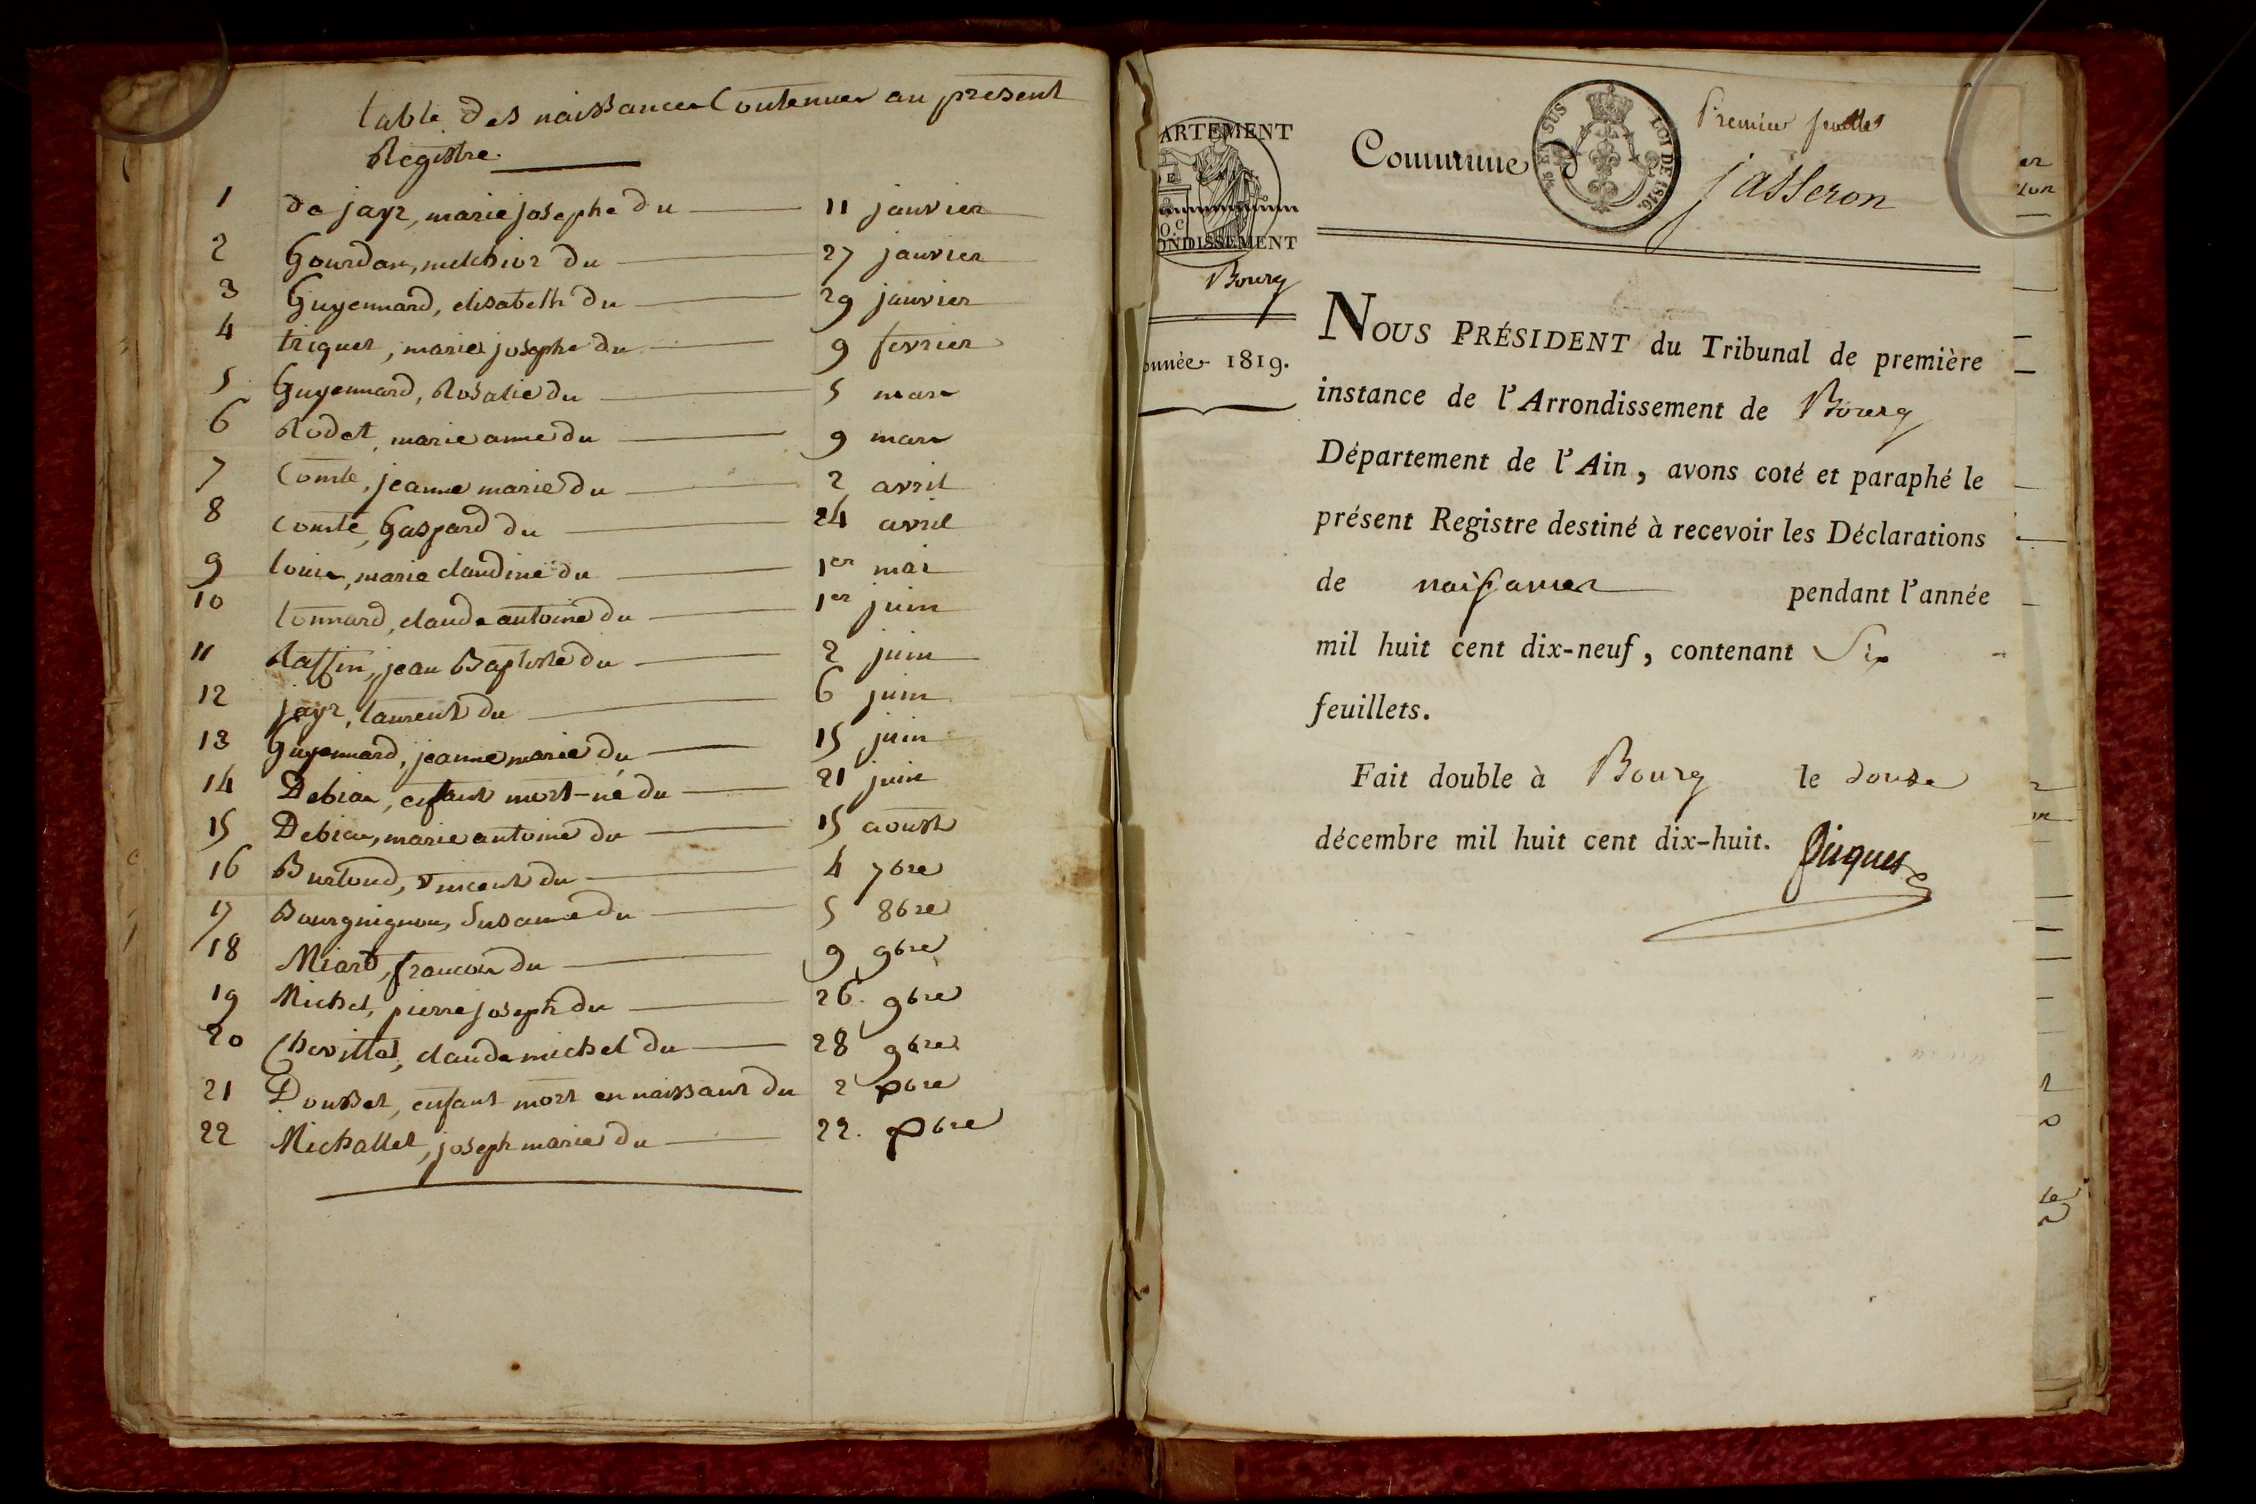 table des naissances Contenues au present
Registre
1 de jayr, marie josephe du 11 janvier
2 Gourdan, melchior du 27 janvier
3 Guyennard, elisabeth du 29 janvier
4 triquet, marie josephe du 9 fevrier
5 Guyennard, Rosalie du 5 mars
6 Rodet, marie anne du 9 mars
7 Comte, jeanne marie du 2 avril
8 Comte, Gaspard du 24 avril
9 louis, marie claudine du 1er mai
10 lonnard, claude antoine du 1er juin
11 Raffin, jean Baptiste du 2 juin
12 jayr, laurent du 6 juin
13 Guyennard, jeanne marie du 15 juin
14 Debias, enfant mort-né du 21 juin
15 Debias, marie antoine du 15 aoust
16 Burtoud, vincent du 4 7bre
17 Bourguignon, Susanne du 5 8bre
18 Miard, francois du 9 9bre
19 Michel, pierre joseph du 26. 9bre
20 Chevillat, claude michel du 28 9bre
21 Dousset, enfant mort en naissant du 2 xbre
22 Michallet, joseph marie du 22. xbre
ARTEMENT
O.C
ONDISSEMENT
Bourg
onnée 1819.
Premier feuillet
Commune d
EN SUS
LOI DE 1816.
jasseron
NOUS PRÉSIDENT du Tribunal de première
instance de l'Arrondissement de Bourg
Département de l'Ain, avons coté et paraphé le
présent Registre destiné à recevoir les Déclarations
de naissances pendant l'année
mil huit cent dix-neuf, contenant Six
feuillets.
Fait double à Bourg le douze
décembre mil huit cent dix-huit.